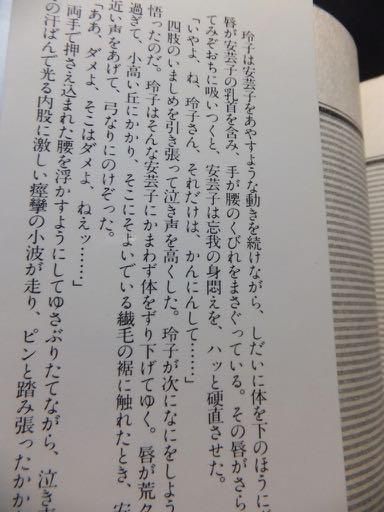 玲子は安芸子をあやすような動きを続けながら、しだいに体を下のほうに
唇が安芸子の乳首を含み、手が腰のくびれをまさぐっている。その唇がさら
てみぞおちに吸いつくと、安芸子は忘我の身悶えを、ハッと硬直させた。
「いやよ、ね、玲子さん、それだけは、かんにんして……」
四肢のいましめを引き張って泣き声を高くした。玲子が次になにをしよう
悟ったのだ。玲子はそんな安芸子にかまわず体をずり下げてゆく。唇が荒
過ぎて、小高い丘にかかり、そこにそよいでいる繊毛の裾に触れたとき、安
近い声をあげて、弓なりにのけぞった。
「ああ、ダメよ、そこはダメよ、ねえッ……」
両手で押さえ込まれた腰を浮かすようにしてゆさぶりたてながら、泣き
の汗ばんで光る内股に激しい痙攣の小波が走り、ピンと踏み張ったか